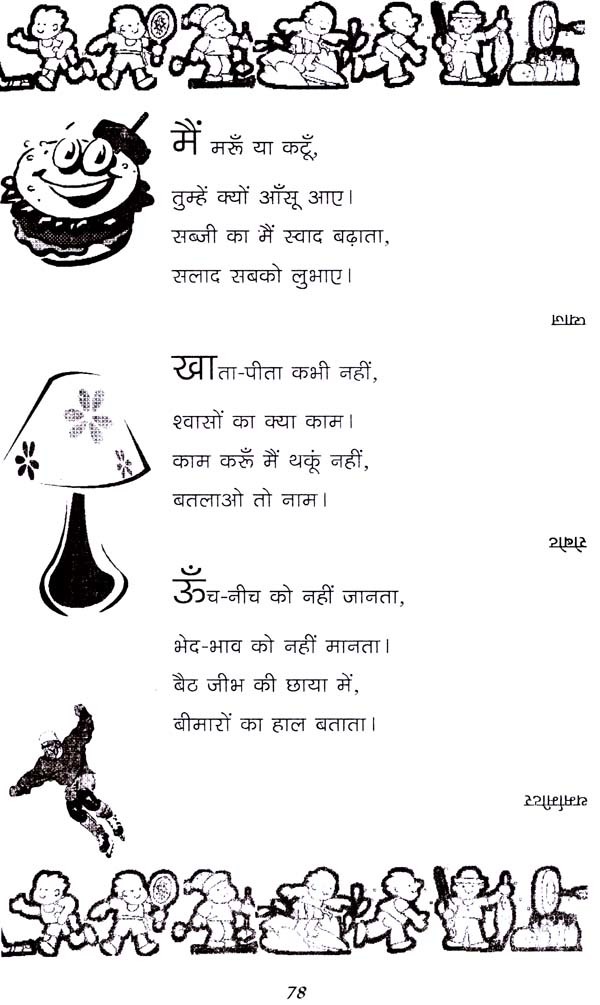 मैं मरूँ या कटूँ,
तुम्हें क्यों आँसू आए।
सब्जी का मैं स्वाद बढ़ाता,
सलाद सबको लुभाए।
प्याज
खाता-पीता कभी नहीं,
श्वासों का क्या काम।
काम करूँ मैं थकूं नहीं,
बतलाओ तो नाम।
रोबोट
ऊँच-नीच को नहीं जानता,
भेद-भाव को नहीं मानता।
बैठ जीभ की छाया में,
बीमारों का हाल बताता।
थर्मामीटर
78